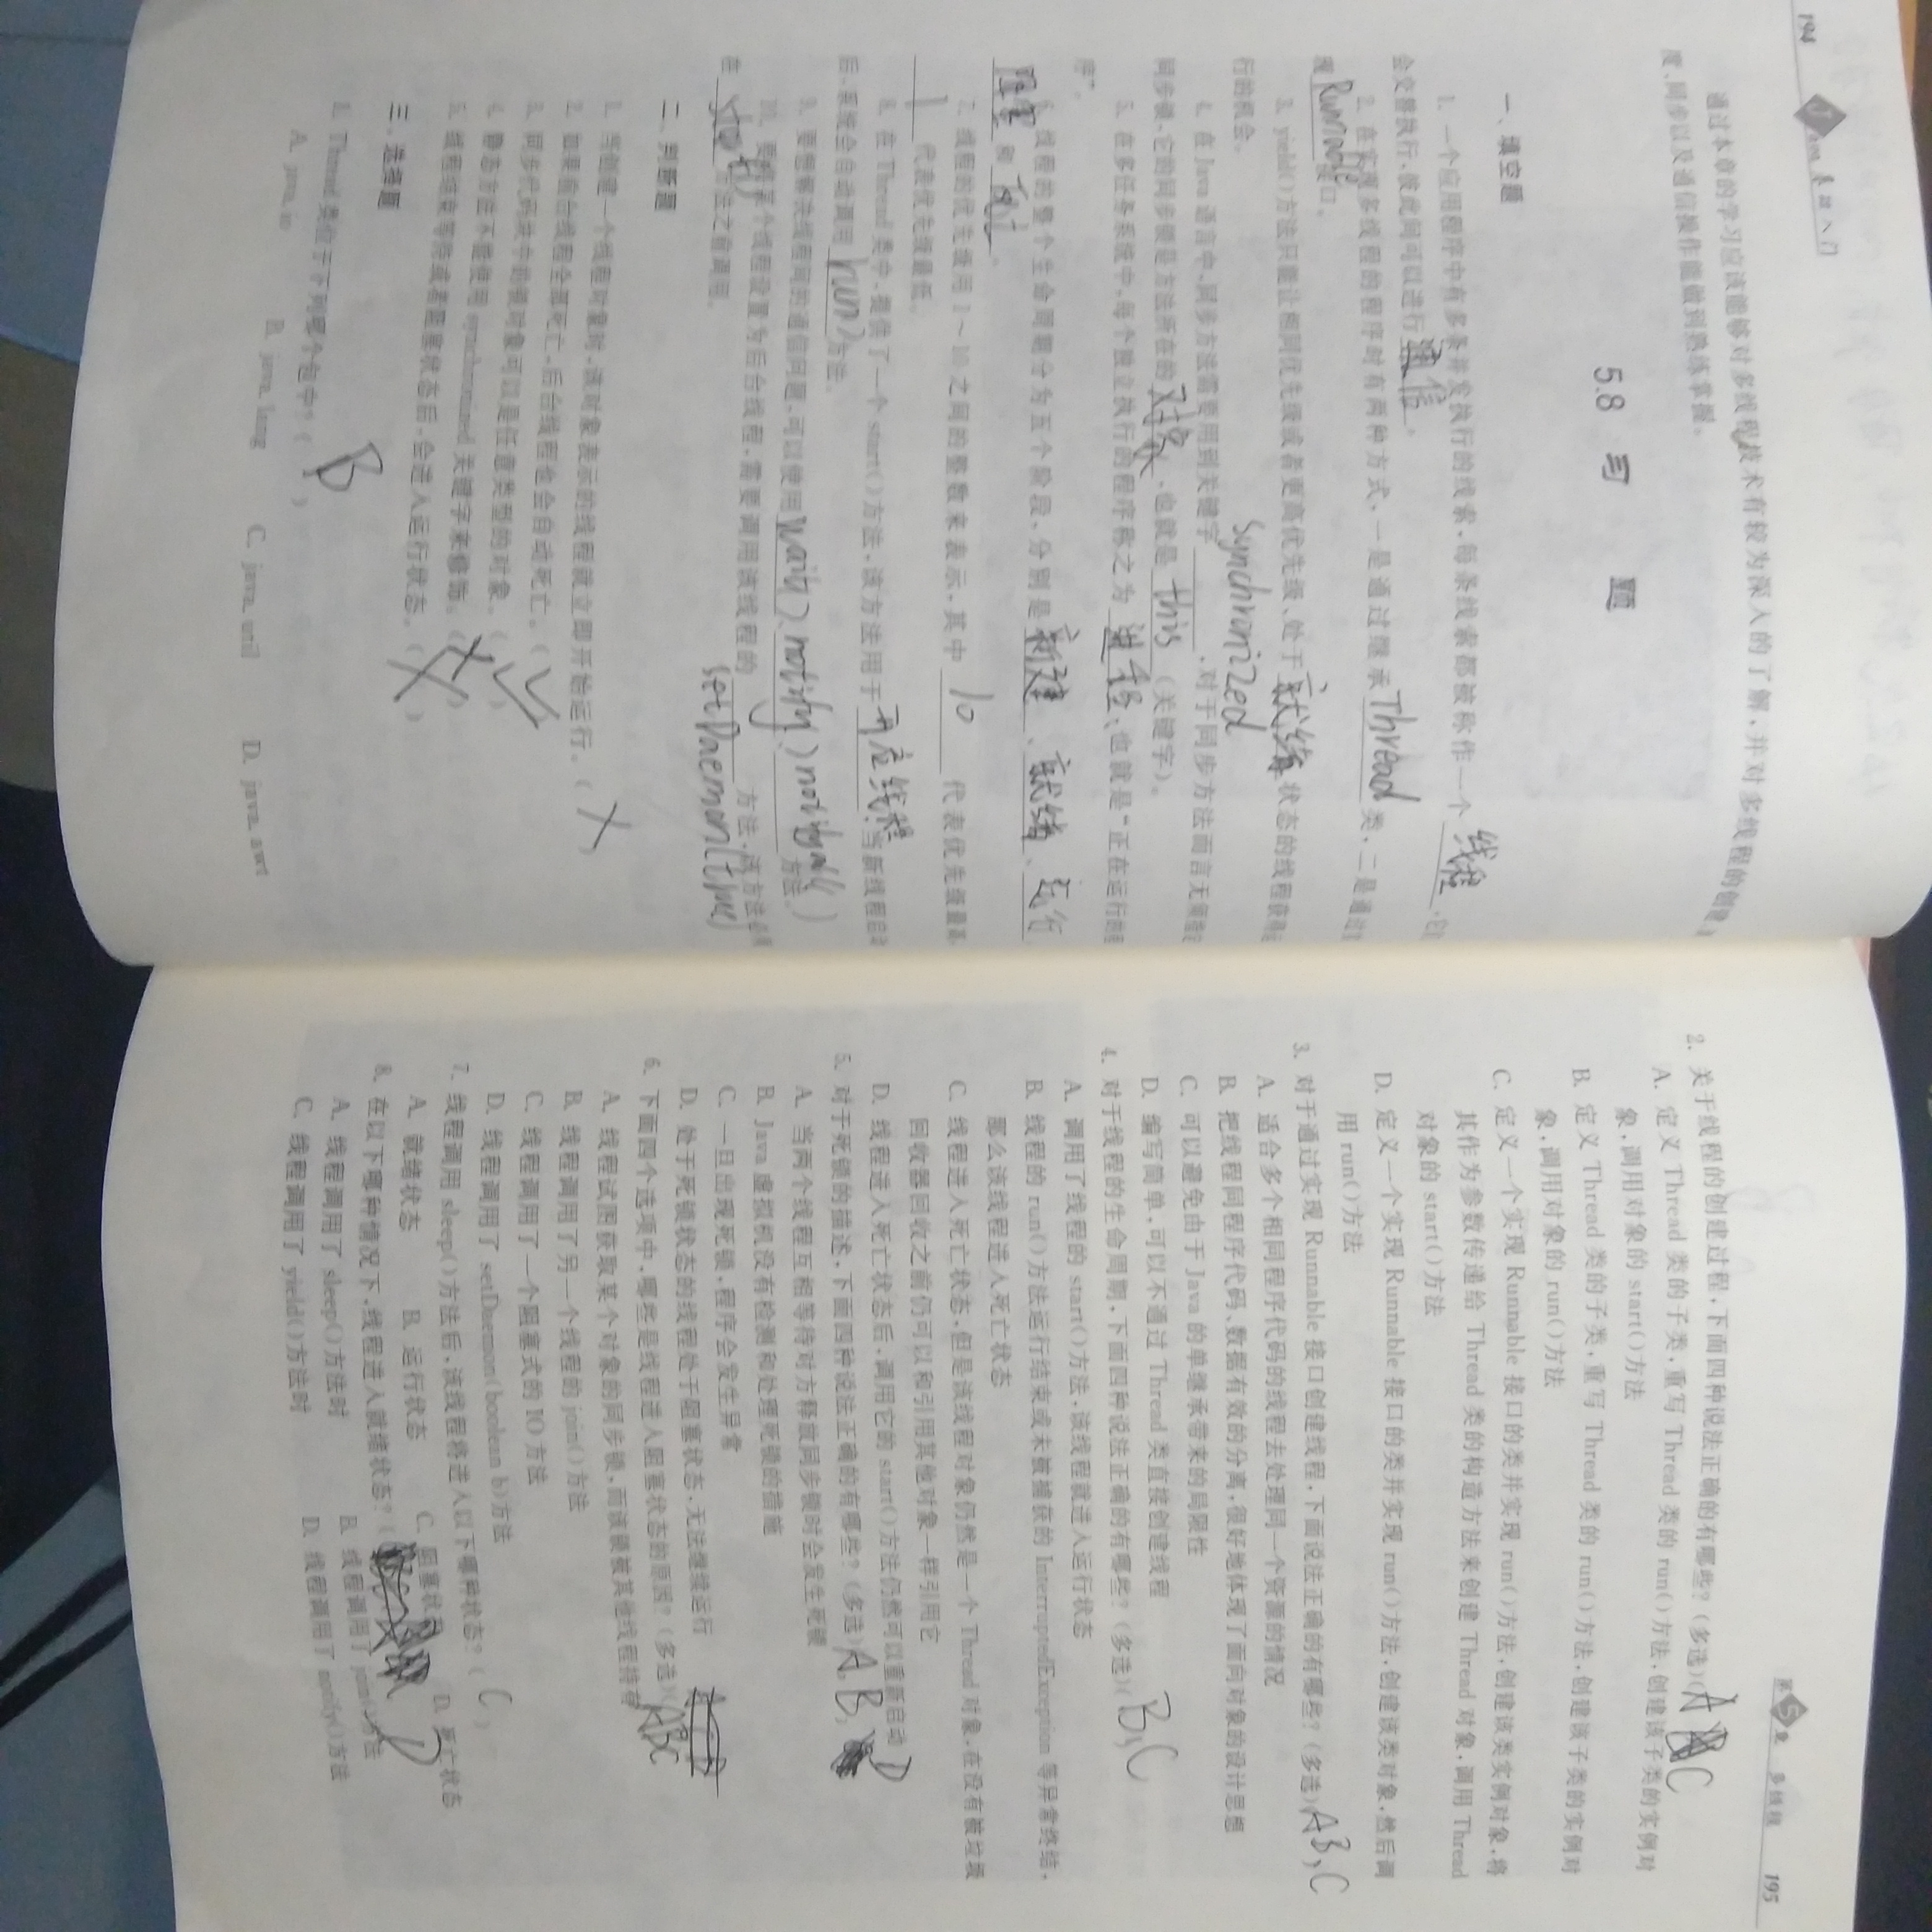 194 Java 基础入门
通过本章的学习应该能够对多线程技术有较为深入的了解,并对多线程的创建、
度、同步以及通信操作能做到熟练掌握。
5.8 习 题
一、填空题
1. 一个应用程序中有多条并发执行的线索,每条线索都被称作一个 线程 ,它
会交替执行,彼此间可以进行 通信 。
2. 在实现多线程的程序时有两种方式,一是通过继承 Thread 类,二是通过
现 Runnable 接口。
3. yield()方法只能让相同优先级或者更高优先级、处于 就绪 状态的线程获得
行的机会。
4. 在 Java 语言中,同步方法需要用到关键字 synchronized ,对于同步方法而言无须
同步锁,它的同步锁是方法所在的 对象 ,也就是 this (关键字)。
5. 在多任务系统中,每个独立执行的程序称之为 进程 ,也就是“正在运行的
序”。
6. 线程的整个生命周期分为五个阶段,分别是 新建 、 就绪 、 运行
阻塞 和 死亡 。
7. 线程的优先级用 1~10 之间的整数来表示,其中 10 代表优先级最高,
1 代表优先级最低。
8. 在 Thread 类中,提供了一个 start()方法,该方法用于 开启线程 ,当新线程启动
后,系统会自动调用 run() 方法。
9. 要想解决线程间的通信问题,可以使用 wait() notify() notifyAll() 方法。
10. 要将某个线程设置为后台线程,需要调用该线程的 setDaemon(true) 方法,该方法必须
在 start() 方法之前调用。
二、判断题
1. 当创建一个线程对象时,该对象表示的线程就立即开始运行。( X )
2. 如果前台线程全部死亡,后台线程也会自动死亡。( √ )
3. 同步代码块中的锁对象可以是任意类型的对象。( √ )
4. 静态方法不能使用 synchronized 关键字来修饰。( X )
5. 线程结束等待或者阻塞状态后,会进入运行状态。( X )
三、选择题
1. Thread 类位于下列哪个包中?( B )
A. java.io B. java.lang C. java.util D. java.awt
第5章 多线程 195
2. 关于线程的创建过程,下面四种说法正确的有哪些?(多选)( A C
A. 定义 Thread 类的子类,重写 Thread 类的 run()方法,创建该子类的实例对
象,调用对象的 start()方法
B. 定义 Thread 类的子类,重写 Thread 类的 run()方法,创建该子类的实例对
象,调用对象的 run()方法
C. 定义一个实现 Runnable 接口的类并实现 run()方法,创建该类实例对象,将
其作为参数传递给 Thread 类的构造方法来创建 Thread 对象,调用 Thread
对象的 start()方法
D. 定义一个实现 Runnable 接口的类并实现 run()方法,创建该类对象,然后调
用 run()方法
3. 对于通过实现 Runnable 接口创建线程,下面说法正确的有哪些?(多选)( A B, C
A. 适合多个相同程序代码的线程去处理同一个资源的情况
B. 把线程同程序代码、数据有效的分离,很好地体现了面向对象的设计思想
C. 可以避免由于 Java 的单继承带来的局限性
D. 编写简单,可以不通过 Thread 类直接创建线程
4. 对于线程的生命周期,下面四种说法正确的有哪些?(多选)( B, C
A. 调用了线程的 start()方法,该线程就进入运行状态
B. 线程的 run()方法运行结束或未被捕获的 InterruptedException 等异常终结,
那么该线程进入死亡状态
C. 线程进入死亡状态,但是该线程对象仍然是一个 Thread 对象,在没有被垃圾
回收器回收之前仍可以和引用其他对象一样引用它
D. 线程进入死亡状态后,调用它的 start()方法仍然可以重新启动
5. 对于死锁的描述,下面四种说法正确的有哪些?(多选) A, B, D
A. 当两个线程互相等待对方释放同步锁时会发生死锁
B. Java 虚拟机没有检测和处理死锁的措施
C. 一旦出现死锁,程序会发生异常
D. 处于死锁状态的线程处于阻塞状态,无法继续运行
6. 下面四个选项中,哪些是线程进入阻塞状态的原因?(多选)( ABC
A. 线程试图获取某个对象的同步锁,而该锁被其他线程持有
B. 线程调用了另一个线程的 join()方法
C. 线程调用了一个阻塞式的 IO 方法
D. 线程调用了 setDaemon(boolean b)方法
7. 线程调用 sleep()方法后,该线程将进入以下哪种状态?( C )
A. 就绪状态 B. 运行状态 C. 阻塞状态 D. 死亡状态
8. 在以下哪种情况下,线程进入就绪状态?( D
A. 线程调用了 sleep()方法时 B. 线程调用了 join()方法
C. 线程调用了 yield()方法时 D. 线程调用了 notify()方法